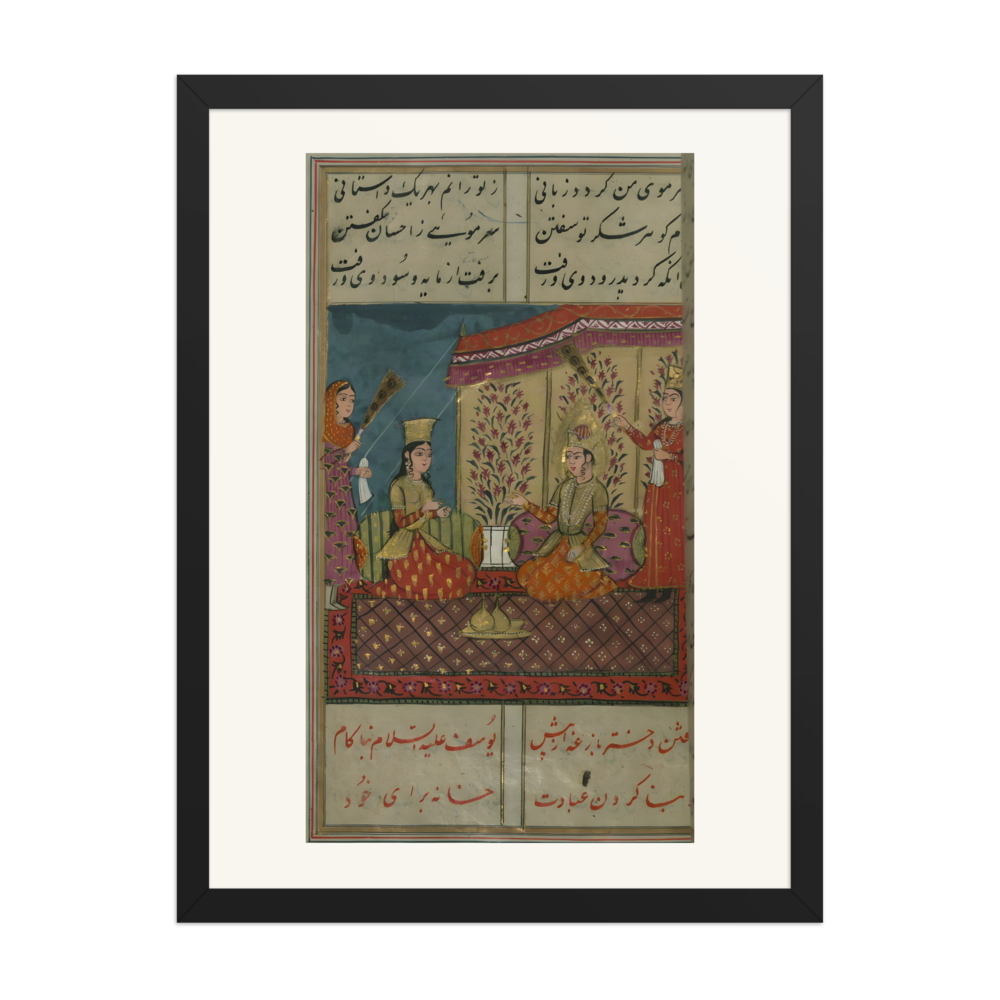 رموی من کردد زبانی ز تو رانم بهر یک داستانی
م کوهر شکر تو سفتن سر مویی ز احسان گفتن
انکه کرد بدرود وی و رفت برفت از مایه و سود وی و رفت
فتن دختر بازغه از پیش یوسف علیه السلام نا کام
بنا کردن عبادت خانه برای خود